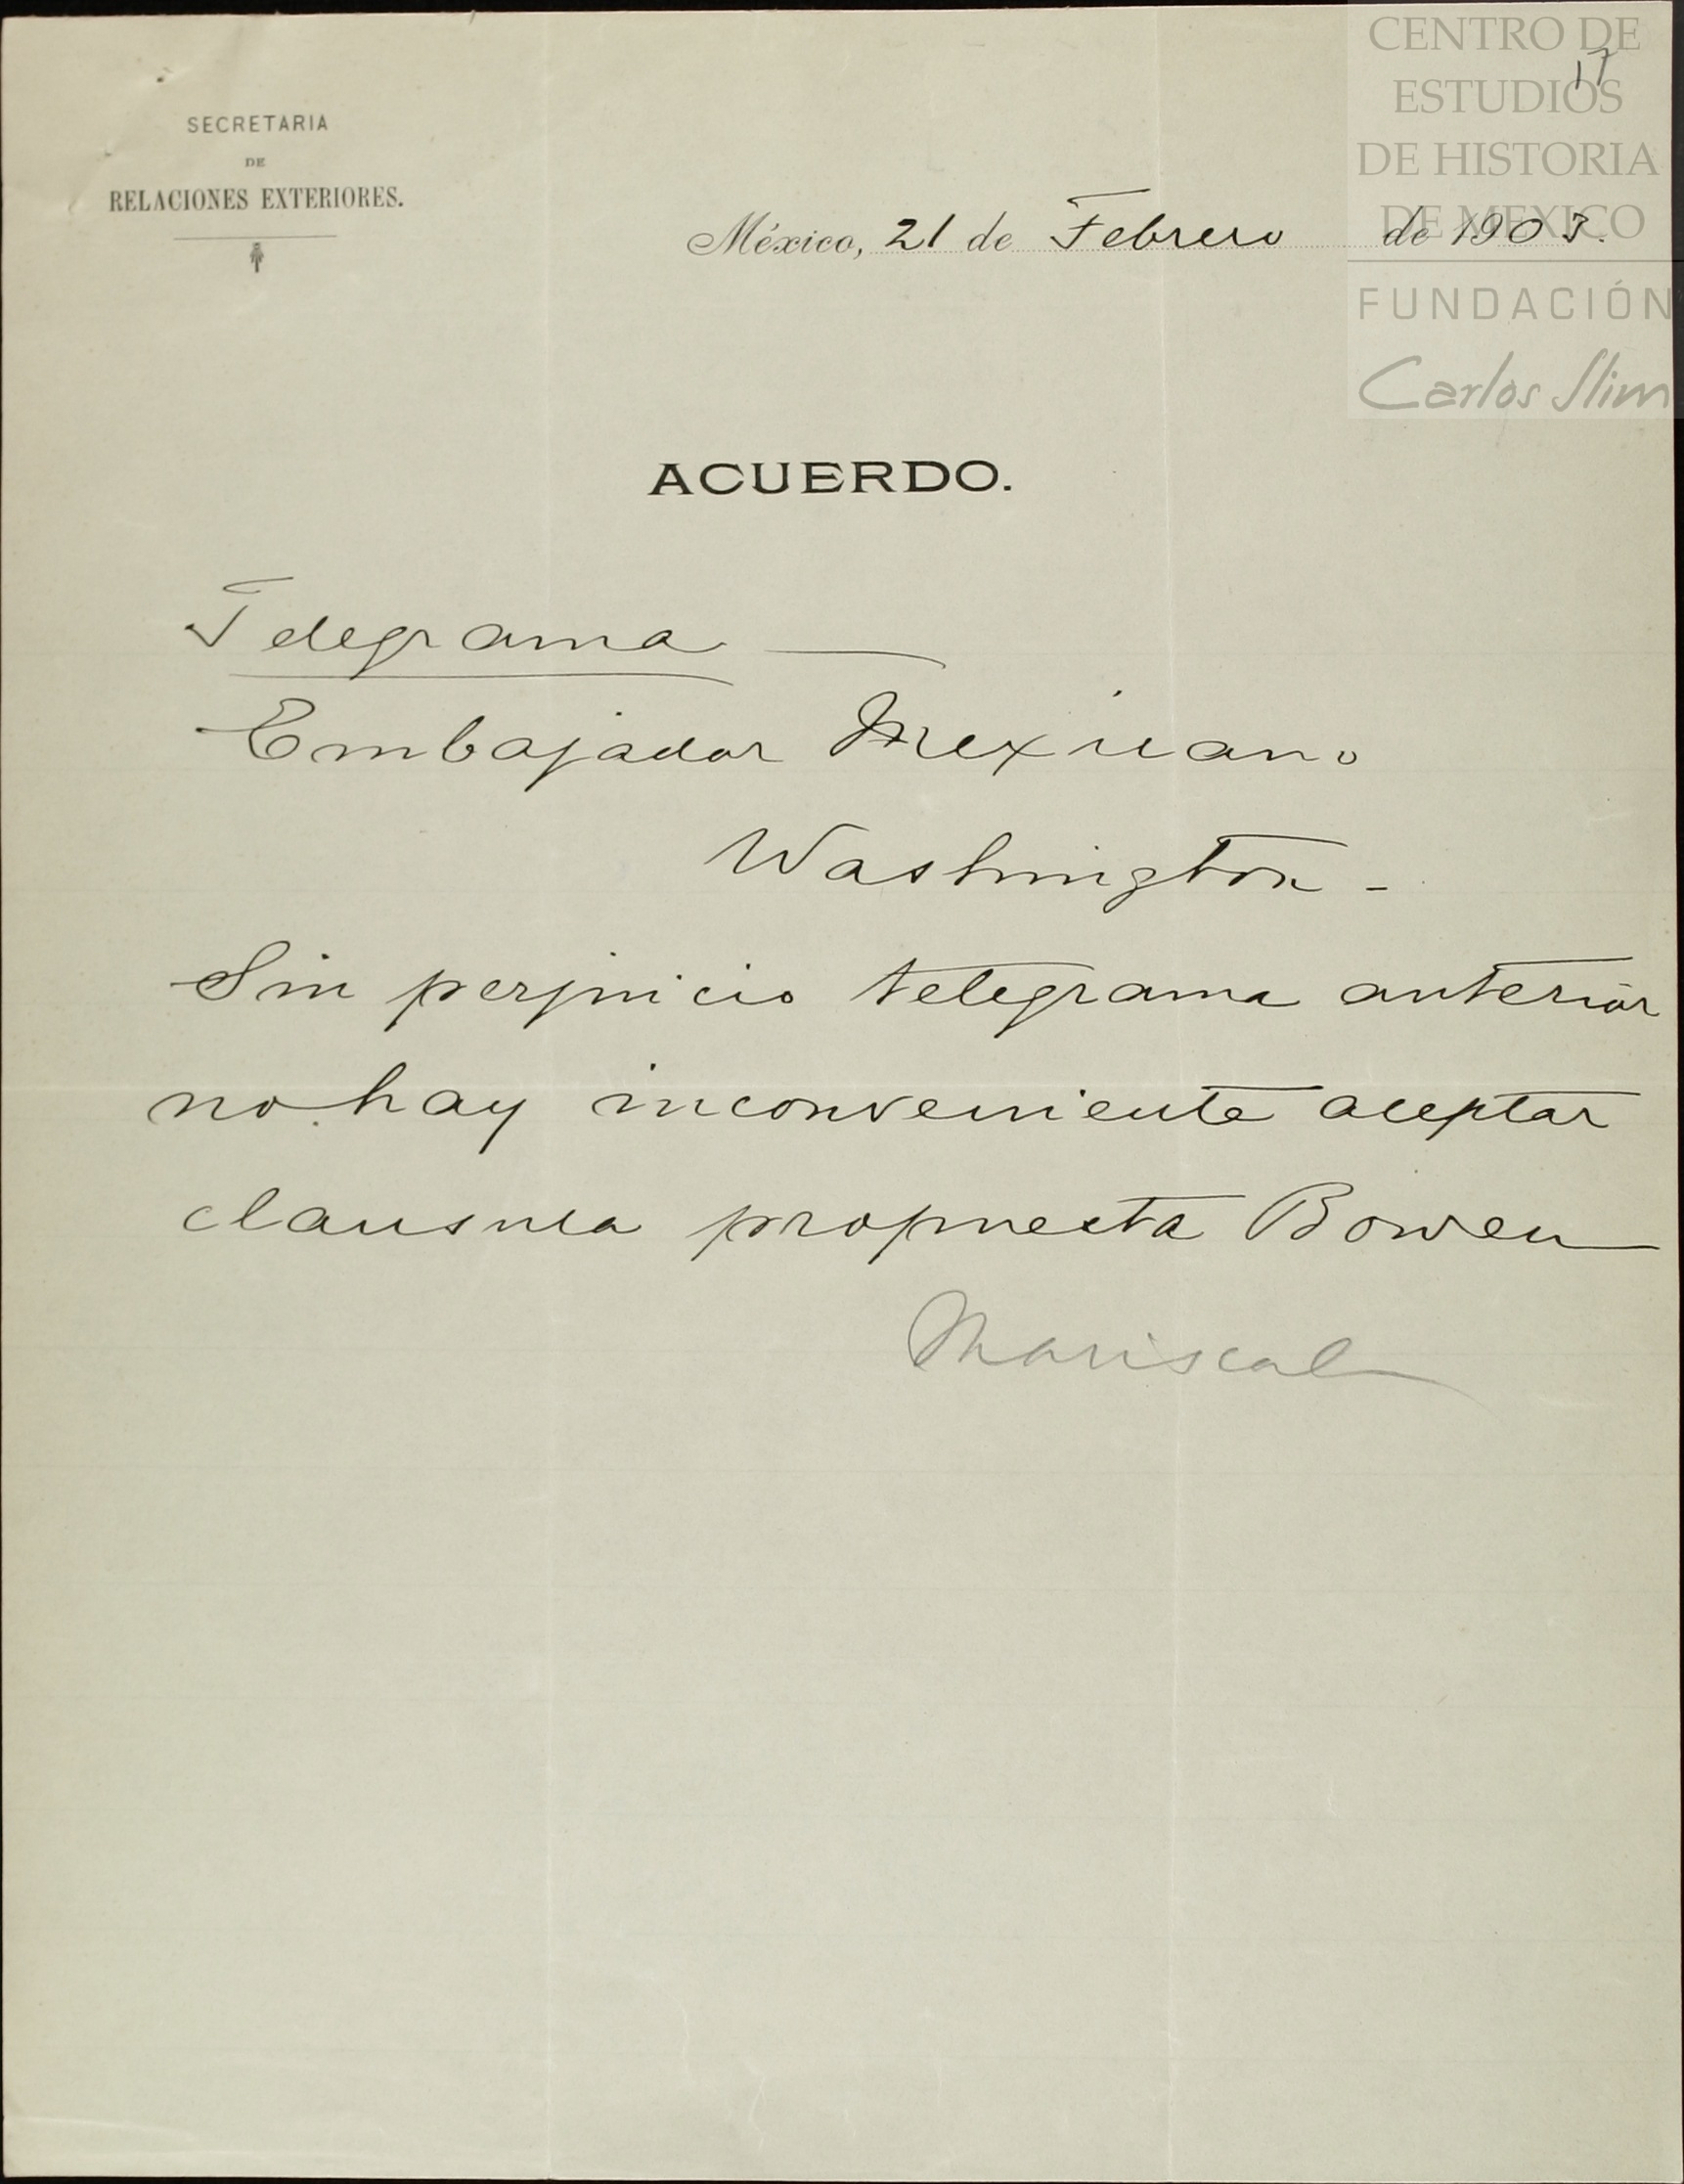 CENTRO DE
ESTUDIOS
DE HISTORIA
DE MEXICO
FUNDACIÓN
Carlos Slim
17
SECRETARIA
DE
RELACIONES EXTERIORES.
México, 21 de Febrero de 1903.
ACUERDO.
Telegrama
Embajador Mexicano
Washington -
Sin perjuicio telegrama anterior
no hay inconveniente aceptar
clausula propuesta Bowen
Mariscal